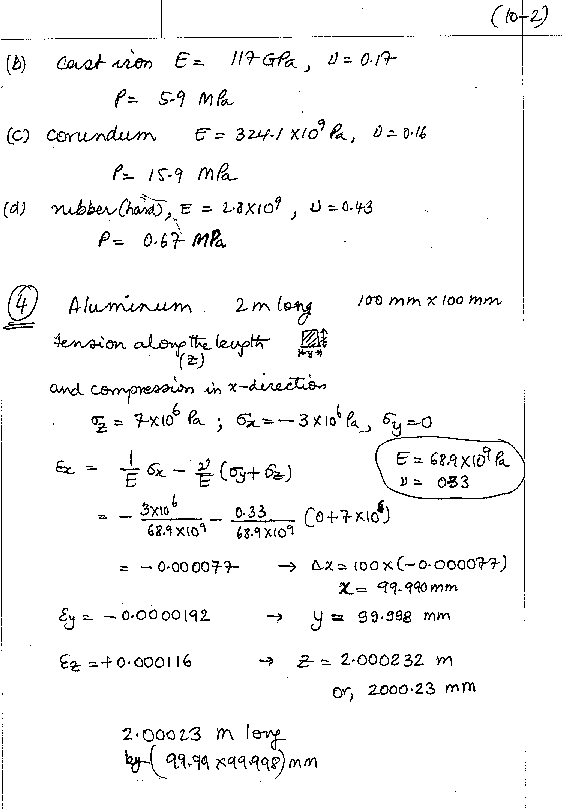 (10-2)
(b) cast iron E = 117 GPa, ν = 0.17
P = 5.9 MPa
(c) corundum E = 324.1 × 10⁹ Pa, ν = 0.16
P = 15.9 MPa
(d) rubber (hard), E = 2.8×10⁹, ν = 0.43
P = 0.67 MPa
④ Aluminum 2 m long 100 mm × 100 mm
tension along the length
(z) y x
and compression in x-direction
σz = 7×10⁶ Pa ; σx = −3×10⁶ Pa, σy = 0
E = 68.9×10⁹ Pa
ν = 0.33
εx = 1/E σx − ν/E (σy + σz)
= − 3×10⁶/68.9×10⁹ − 0.33/68.9×10⁹ (0 + 7×10⁶)
= −0.000077 → Δx = 100 × (−0.000077)
x = 99.990 mm
εy = −0.0000192 → y = 99.998 mm
εz = +0.000116 → z = 2.000232 m
or, 2000.23 mm
2.00023 m long
by (99.99 × 99.998) mm